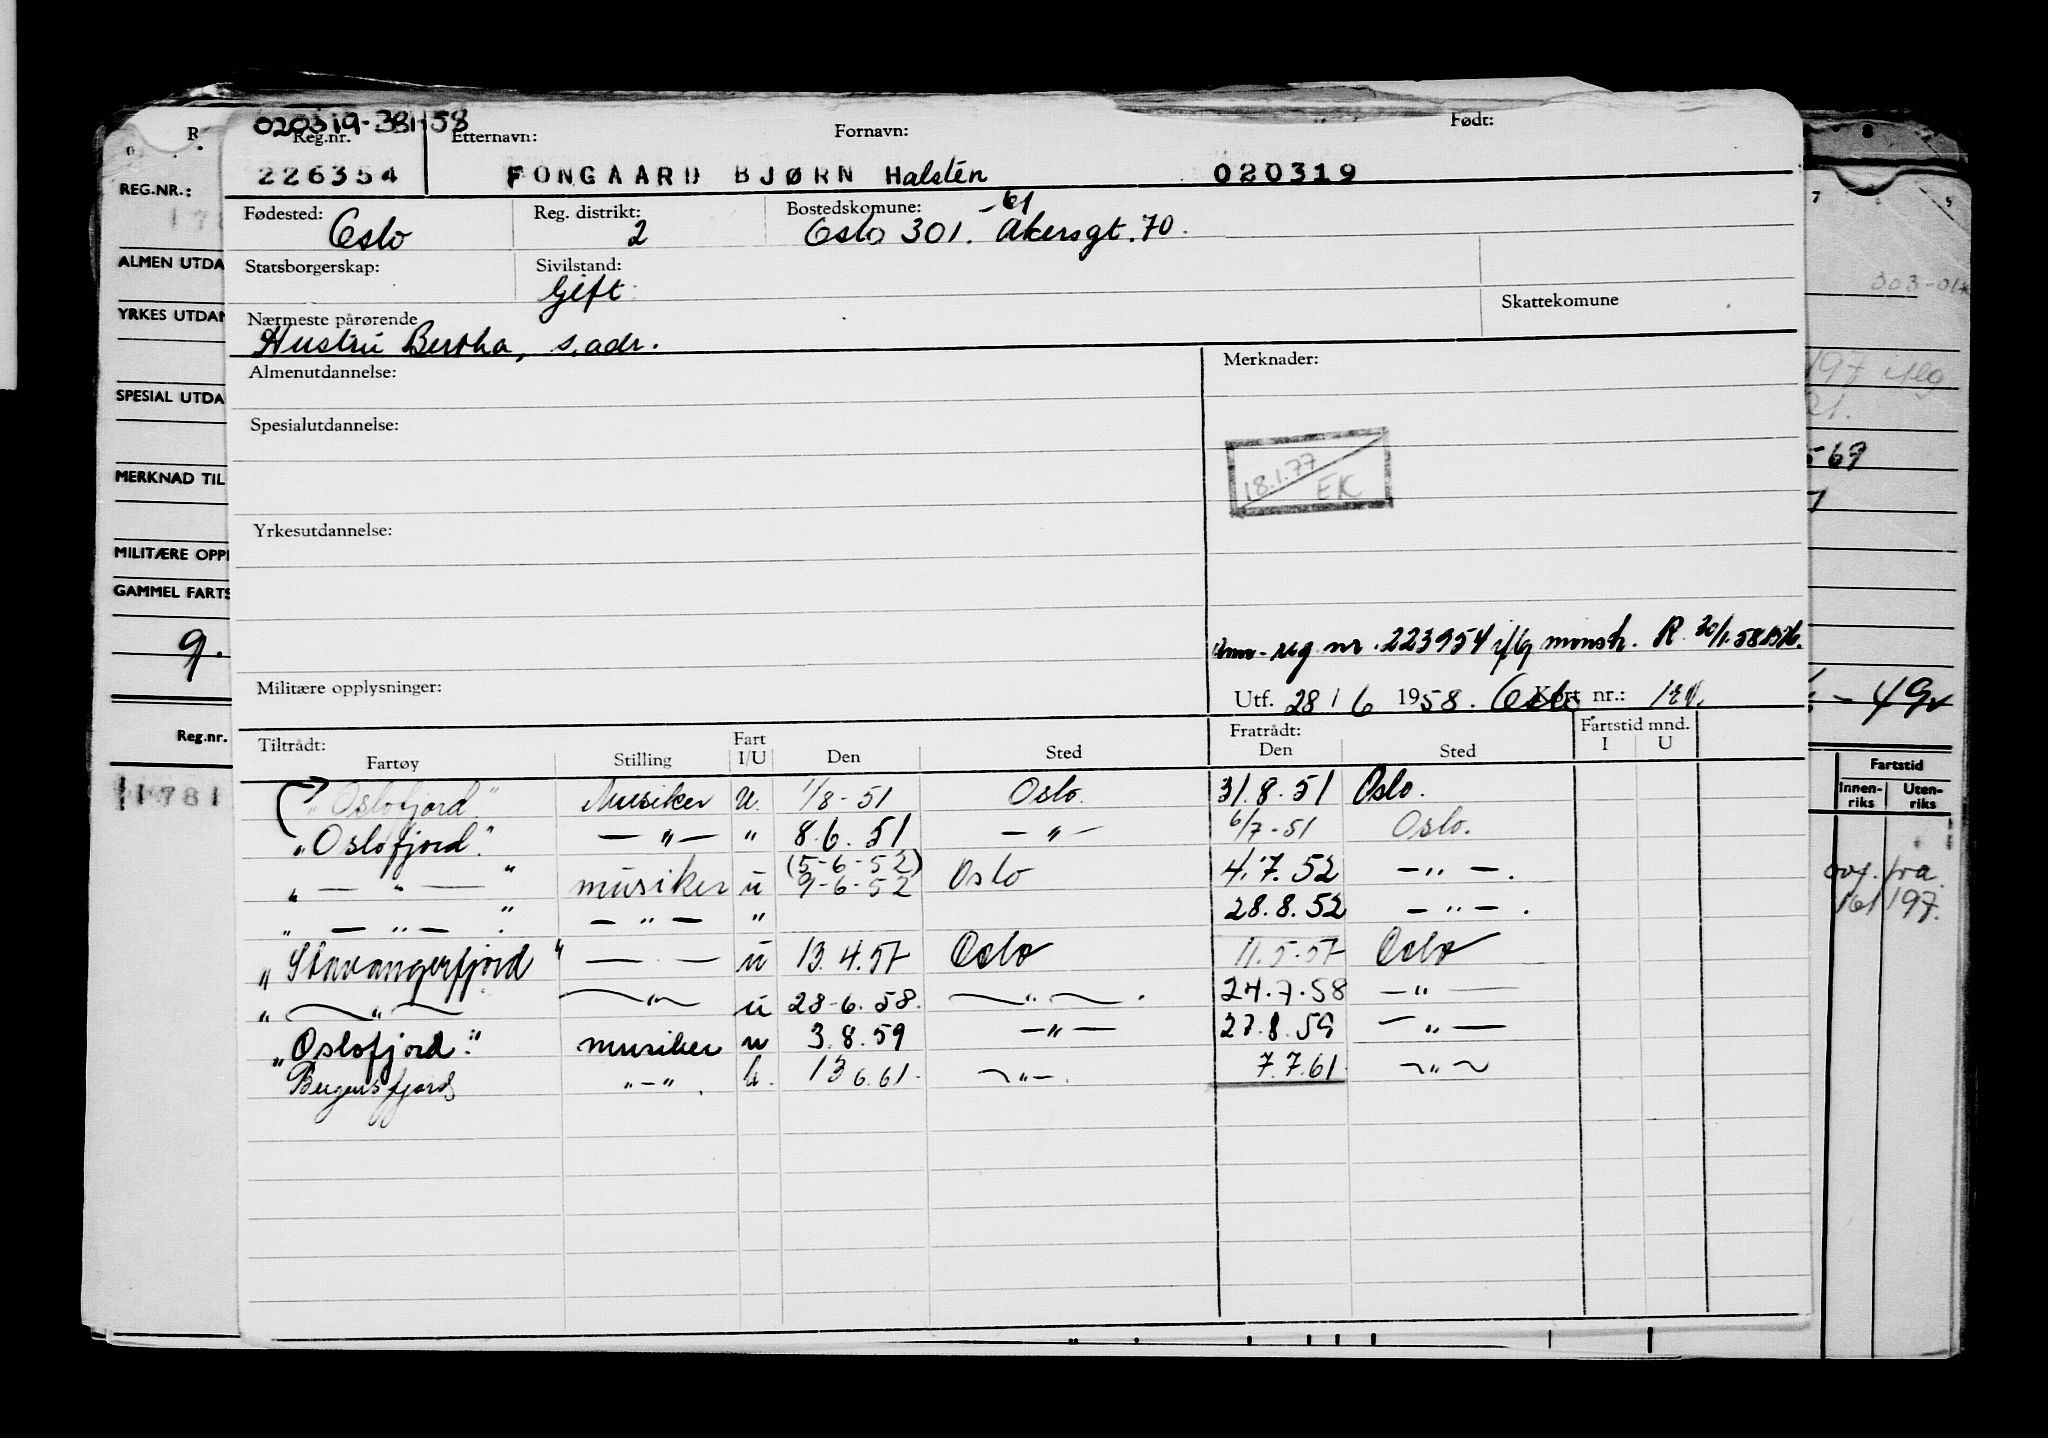 020319-381-58
Reg.nr. Etternavn: Fornavn: Født:
226354 FONGAARD BJØRN Halsten 020319
Fødested: Reg. distrikt: Bostedskomune: -61
Oslo 2 Oslo 301. Akersgt. 70.
Statsborgerskap: Sivilstand:
Gift
Nærmeste pårørende Skattekomune
Hustru Bertha, s. adr.
Almenutdannelse: Merknader:
Spesialutdannelse:
18.1.77
EK
Yrkesutdannelse:
reg nr. 223954 i/flg mønstr. R. 30/1.58
Militære opplysninger: Utf. 28/6 1958. Oslo Kort nr.:
Tiltrådt: Fart Fratrådt: Fartstid mnd.
Fartøy Stilling I/U Den Sted Den Sted I U
"Oslofjord" Musiker U. 1/8-51 Oslo. 31.8.51 Oslo.
"Oslofjord" — " — " 8.6.51 — " — 6/7-51 Oslo.
(5-6-52)
" — " — " musiker u 9-6-52 Oslo 4.7.52 — " — .
" — " — " — " — " 28.8.52 — " — .
"Stavangerfjord" — " — u 13.4.57 Oslo 11.5.57 Oslo
" — " — — " — u 28-6.58. — " — . 24.7.58 — " —
"Oslofjord" musiker u 3.8.59 — " — 27.8.59 — " —
Bergensfjord " — " . u. 13 6.61. — " — . 7.7.61. — " —
REG.NR.:
ALMEN UTDA
YRKES UTDAN
SPESIAL UTDA
MERKNAD TIL
MILITÆRE OPPL
GAMMEL FARTS
9.
Reg.nr.
1781
303-01
197 iflg
569
- 49
Fartstid
Innen-riks Uten-riks
ovf. fra
161 197.